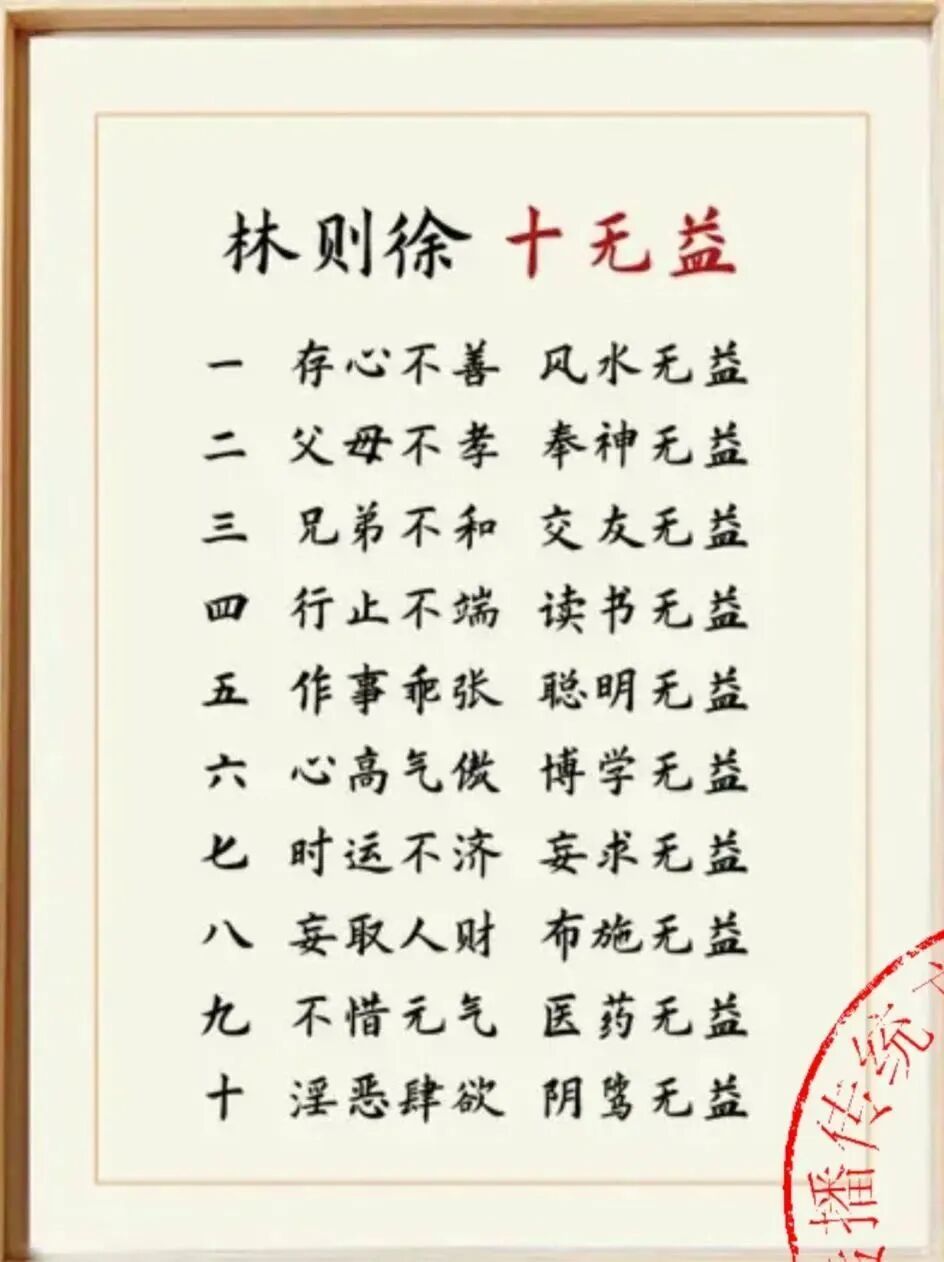 林则徐 十无益
一 存心不善 风水无益
二 父母不孝 奉神无益
三 兄弟不和 交友无益
四 行止不端 读书无益
五 作事乖张 聪明无益
六 心高气傲 博学无益
七 时运不济 妄求无益
八 妄取人财 布施无益
九 不惜元气 医药无益
十 淫恶肆欲 阴骘无益
播传统